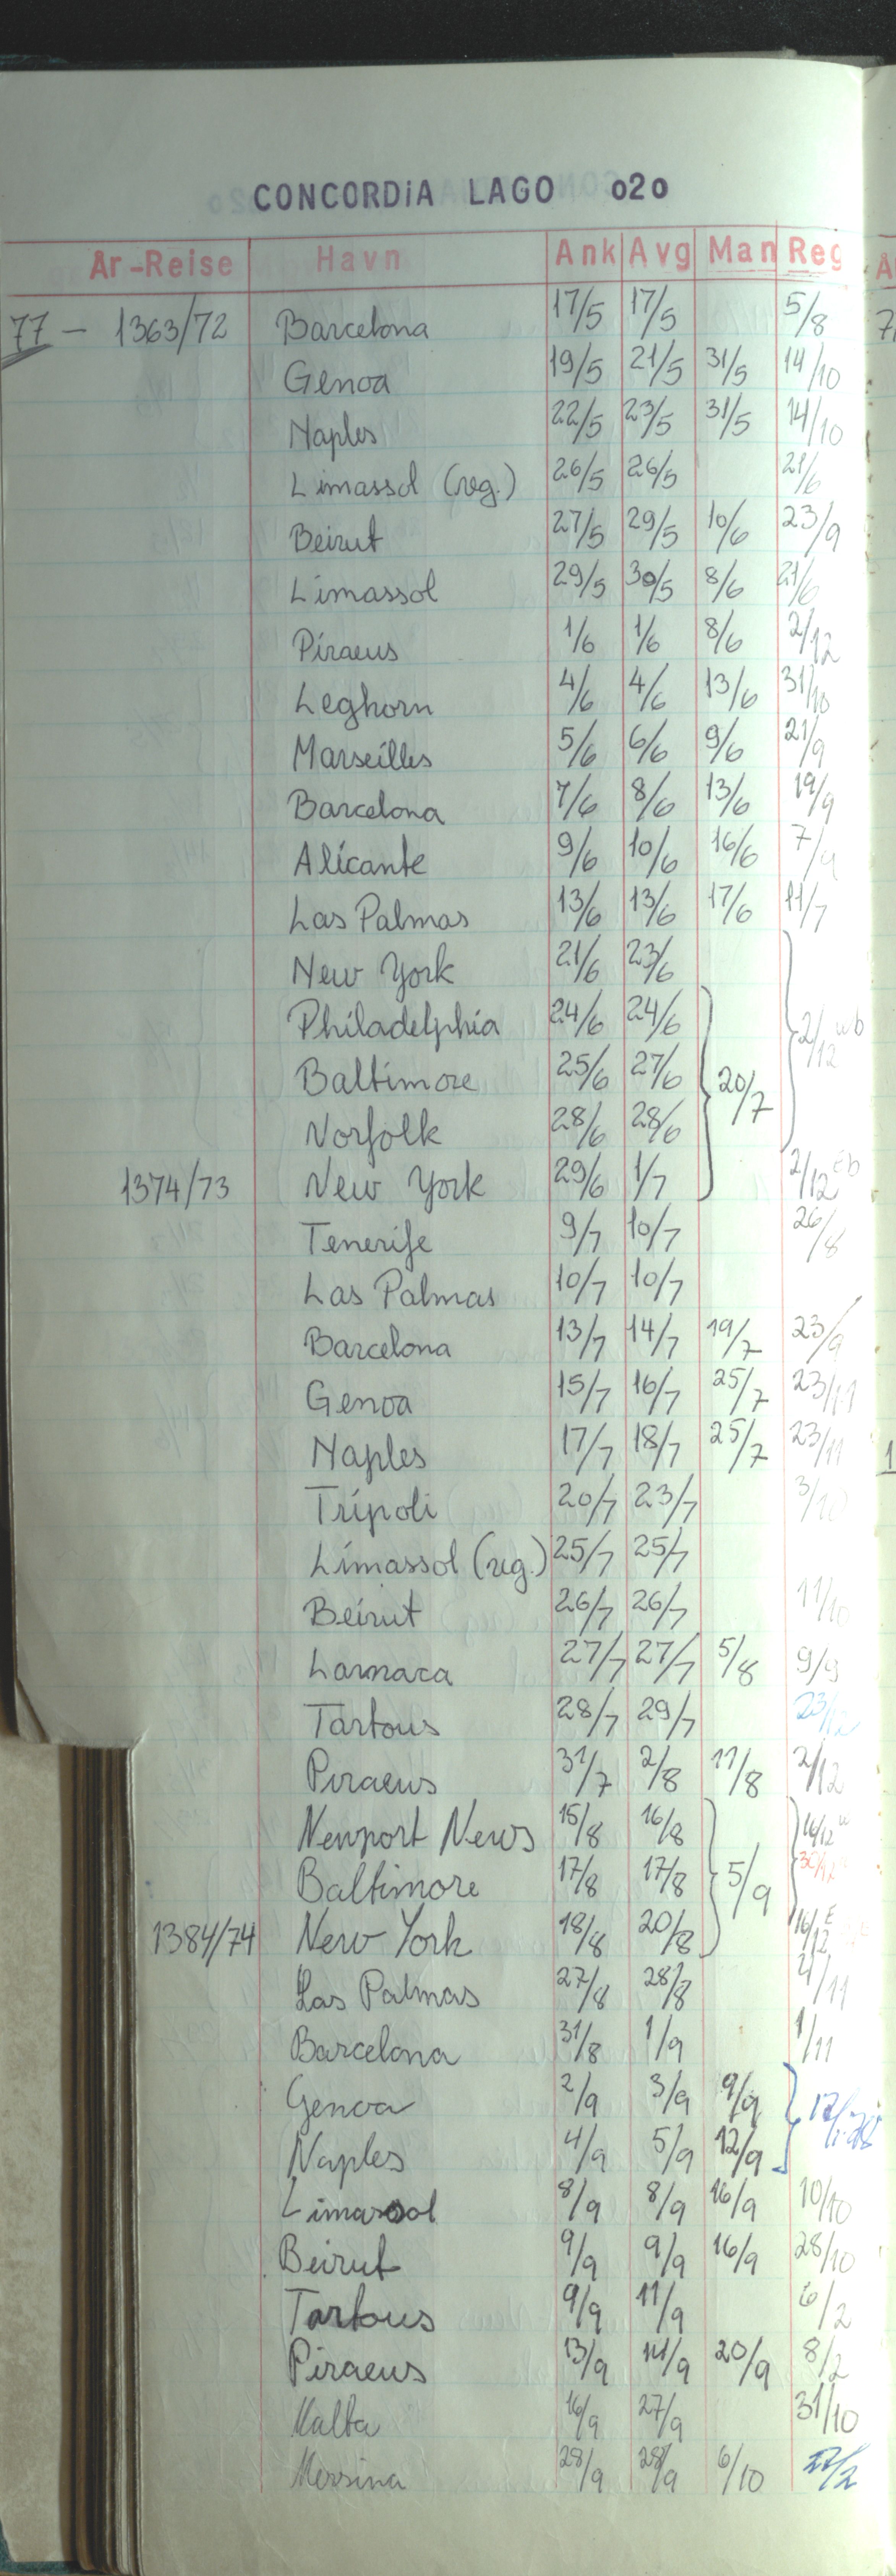 CONCORDIA LAGO 020
Ar-Reise Havn Ank Avg Man Reg
77 - 1363/72 Barcelona 17/5 17/5 5/8
Genoa 19/5 21/5 31/5 14/10
Naples 22/5 23/5 31/5 14/10
Limassol (reg.) 26/5 26/5 21/6
Beirut 27/5 29/5 10/6 23/9
Limassol 29/5 30/5 8/6 21/6
Piraeus 1/6 1/6 8/6 2/12
Leghorn 4/6 4/6 13/6 31/10
Marseilles 5/6 6/6 9/6 21/9
Barcelona 7/6 8/6 13/6 19/9
Alicante 9/6 10/6 16/6 7/9
Las Palmas 13/6 13/6 17/6 11/7
New York 21/6 23/6
Philadelphia 24/6 24/6 2/12 wb
Baltimore 25/6 27/6 20/7
Norfolk 28/6 28/6
1374/73 New York 29/6 1/7 2/12 Eb
Tenerife 9/7 10/7 26/8
Las Palmas 10/7 10/7
Barcelona 13/7 14/7 19/7 23/9
Genoa 15/7 16/7 25/7 23/11
Naples 17/7 18/7 25/7 23/11
Tripoli 20/7 23/7 3/10
Limassol (reg.) 25/7 25/7
Beirut 26/7 26/7 11/10
Larnaca 27/7 27/7 5/8 9/9
Tartous 28/7 29/7 23/12
Piraeus 31/7 2/8 11/8 2/12
Newport News 15/8 16/8 16/12 w
Baltimore 17/8 17/8 5/9
1384/74 New York 18/8 20/8 16/12 E
Las Palmas 27/8 28/8
Barcelona 31/8 1/9 1/11
Genoa 2/9 3/9 9/9
Naples 4/9 5/9 12/9
Limassol 8/9 8/9 16/9 10/10
Beirut 9/9 9/9 16/9 28/10
Tartous 9/9 11/9 6/2
Piraeus 13/9 14/9 20/9 8/2
Malta 16/9 27/9 31/10
Messina 28/9 28/9 6/10 27/2